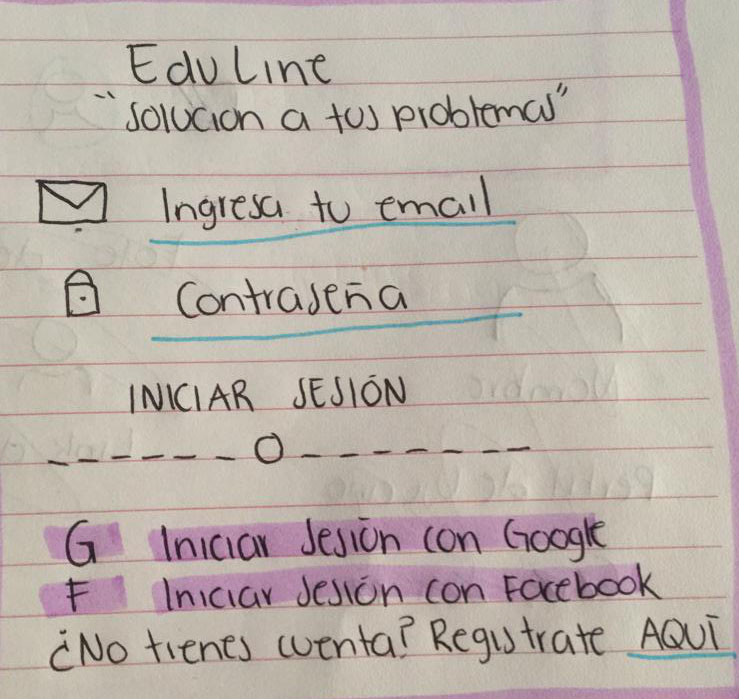 EduLine
"solucion a tus problemas"
Ingresa tu email
Contraseña
INICIAR SESIÓN
------O--------
G Iniciar sesión con Google
F Iniciar sesión con Facebook
¿No tienes cuenta? Registrate AQUÍ